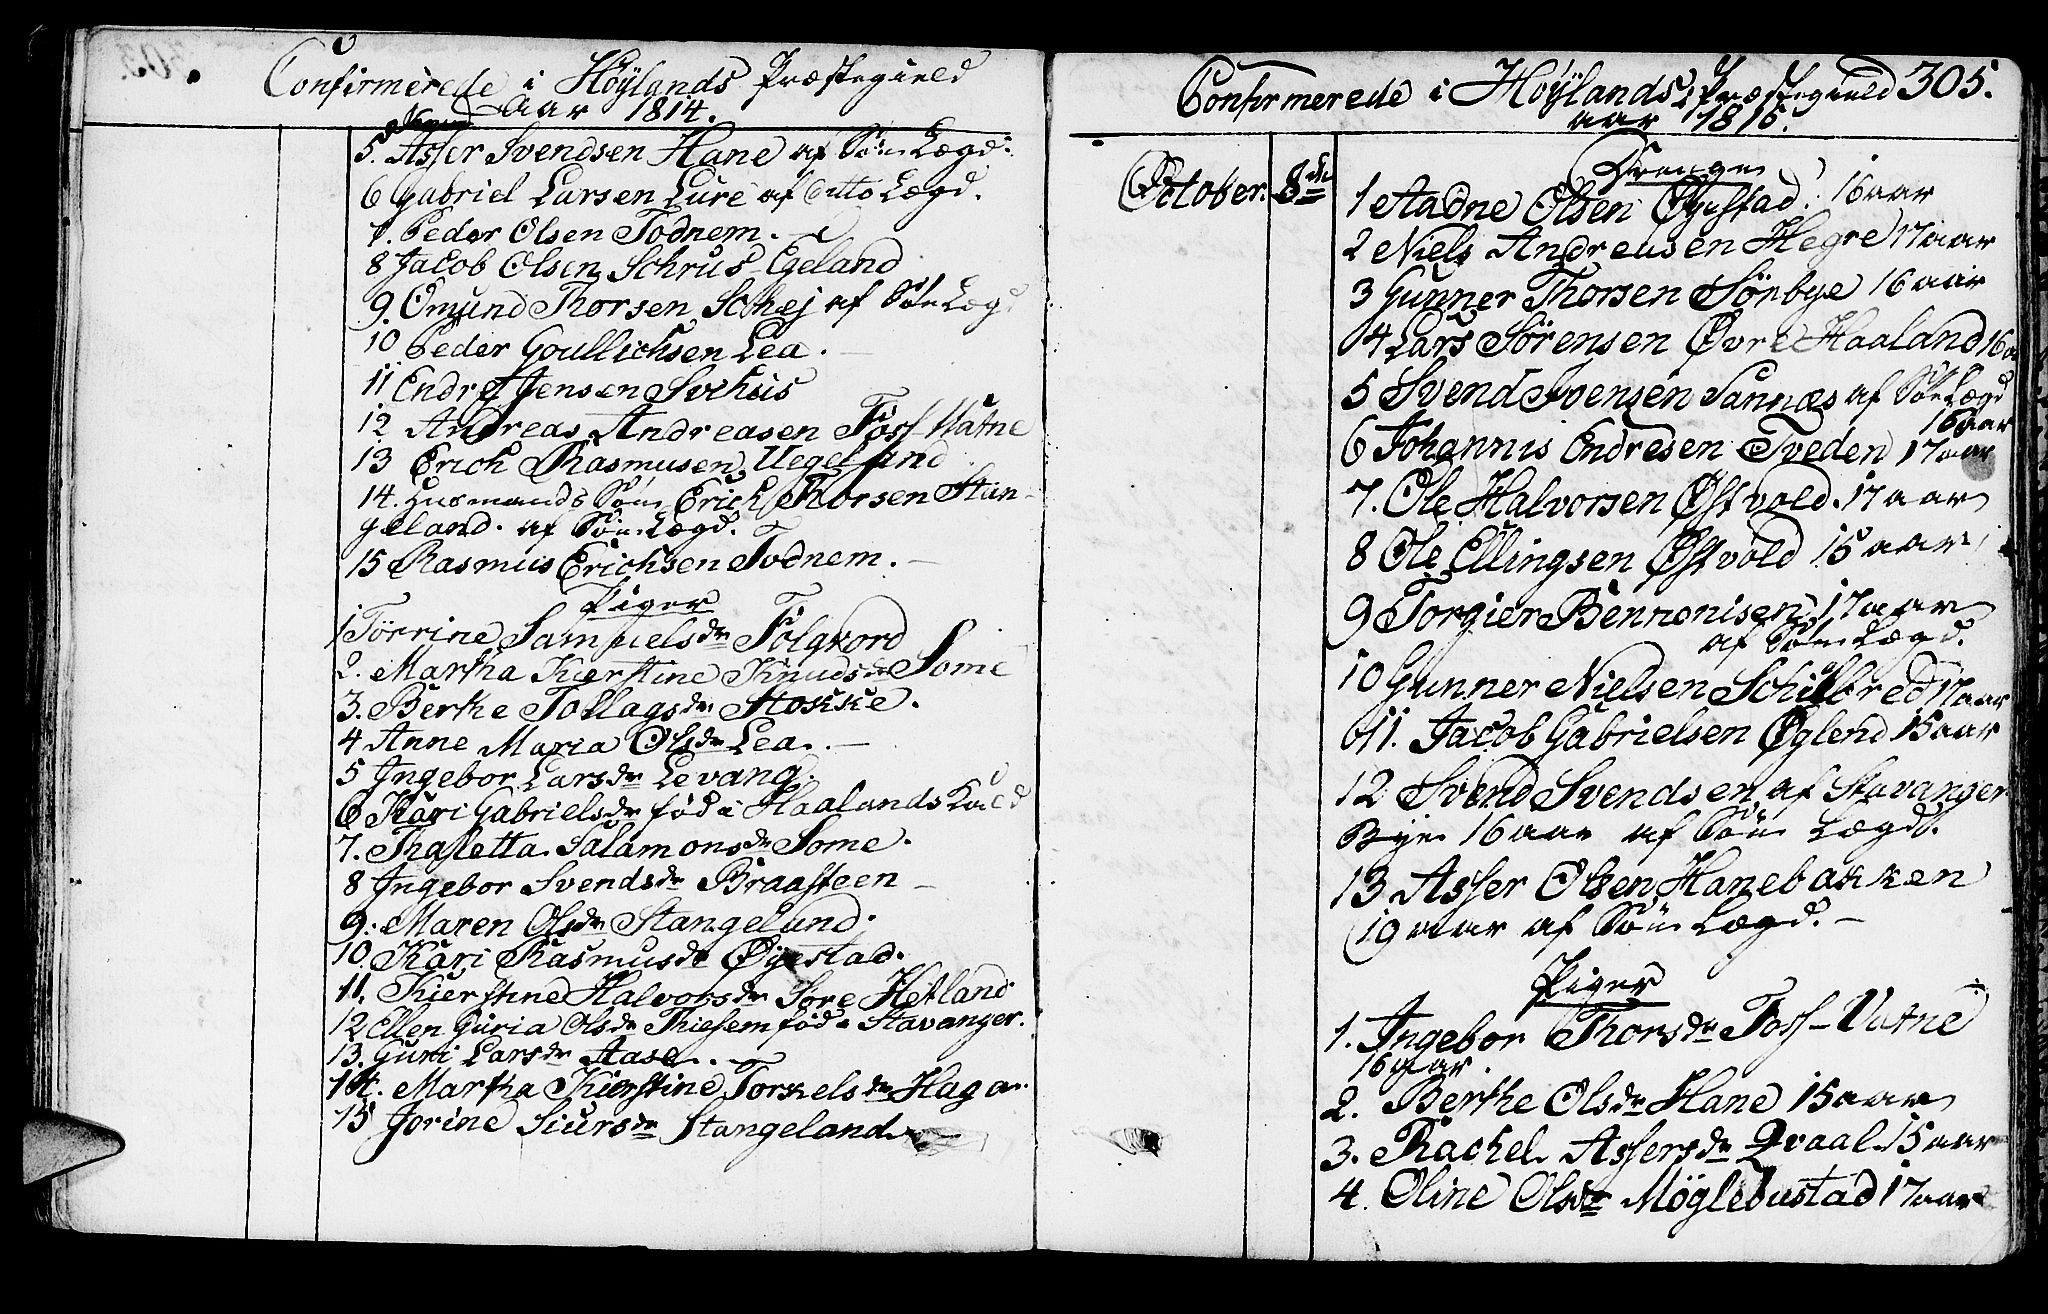 Confirmerede i Høylands Præstegield
Aar 1814.
5. Asser Svendsen Hane af Søe Lægd.
6 Gabriel Larsen Lure af Ditto Lægd.
7. Peder Olsen Todnem.
8 Jacob Olsen Schrus-Egeland
9. Omund Thorsen Schej af Søe Læg
10 Peder Goullichsen Lea.
11 Endre Jensen Svihus
12 Andreas Andreasen Foss-Watne
13 Erich Rasmusen Uegeland
14. Husmands Søn Erich Thorsen Stan-
geland. af Søe Lægd.
15 Rasmus Erichsen Todnem.
Piger
1 Tørrine Samuelsdr Folgvord
2. Martha Kierstine Knudsdr Some
3. Berthe Tollagsdr Stokke.
4 Anne Maria Olsdr Lea.
5 Ingebor Larsdr Levang.
6 Kari Gabrielsdr fød i Haalands Kald
7. Thaletta Salamonsdr Some.
8 Ingebor Svendsdr Braasteen
9. Maren Olsdr Stangeland.
10 Kari Rasmusdr Øyestad.
11. Kierstine Halvorsdr Søre Hetland
12 Ellen Guria Olsdr Thiesem fød i Stavanger.
13. Guri Larsdr Aase.
14. Martha Kierstine Torkelsdr Haga
15 Jorine Siursdr Stangeland
Confirmerede i Høylands Præstegield 305.
aar 1815.
October. 8de
Drenge
1 Aadne Olsen Øyestad. 16 aar
2 Niels Andreasen Hegre 17 aar
3 Gunner Thorsen Sørbye 16 aar
4 Lars Sørensen Øvre Haaland 16 a
5 Svend Svensen Sannæs af Søe Lægd
16 aar
6 Johannis Endresen Tveden 17 aar
7. Ole Halvorsen Østvold. 17 aar
8 Ole Ellingsen Østvold 15 aar
9 Torgier Bennonisen 17 aar
af Søe Lægd.
10 Gunner Nielsen Schibred 17 aar
11. Jacob Gabrielsen Øglend 15 aar
12 Svend Svendsen af Stavanger
Bye 16 aar af Søe Lægd.
13 Asser Olsen Hanebakken
19 aar af Søe Lægd.
Piger
1. Ingebor Thorsdr Foss-Vatne
16 aar.
2. Berthe Olsdr Hane 15 aar
3. Rachel Assersdr Qvaal 15 aar
4. Oline Olsdr Møglebustad 17 aar